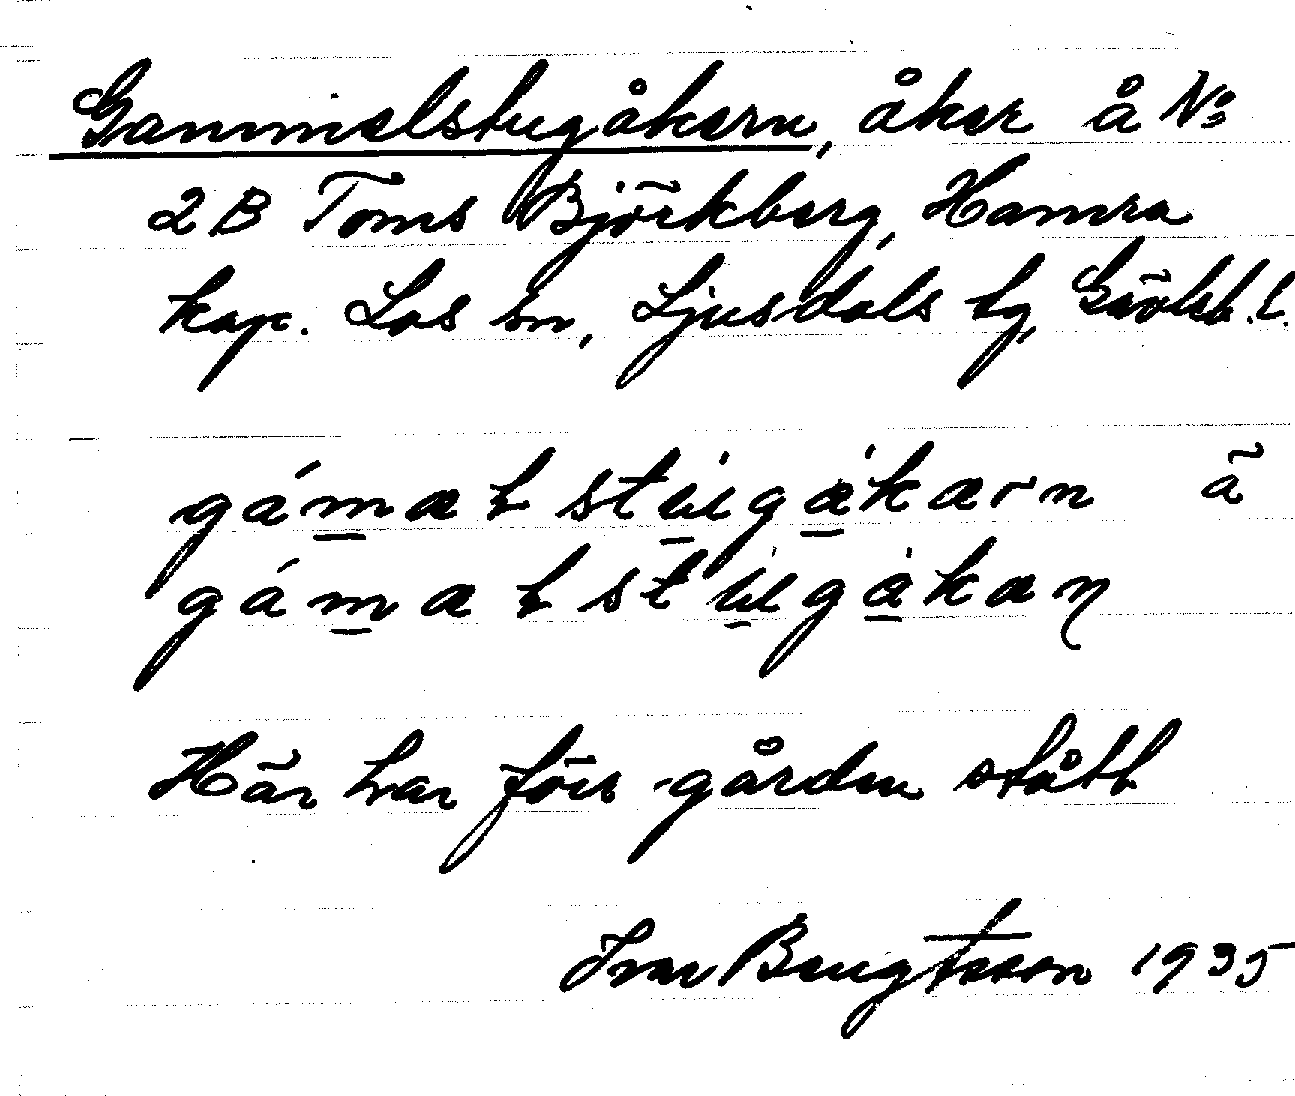 Gammelstugåkern, åker å No
2 B Toms Björkberg, Hamra
kap. Los sn, Ljusdals tg, Gävleb. l.
gámalstugåkærn ä
gámalstugåkæn
Här har förr gården stått
Ivar Bengtsson 1935